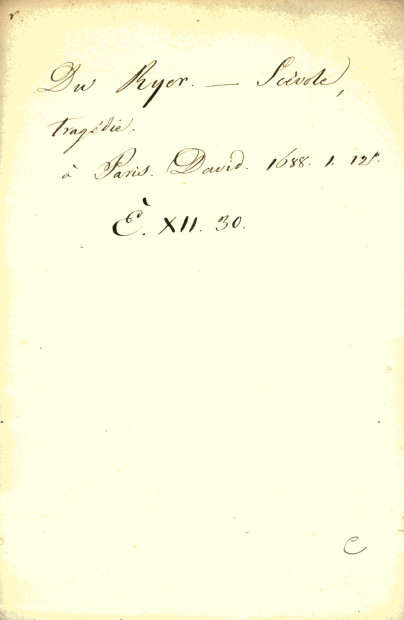 r.
Du Ryer. — Scévole,
tragédie.
à Paris. David. 1688. 1. 12°.
È. XII. 30.
C